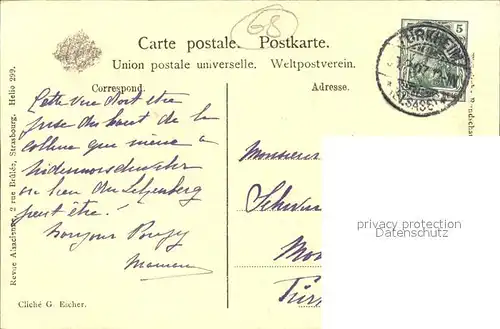 68
Carte postale. Postkarte.
Union postale universelle. Weltpostverein.
Correspond. Adresse.
5
TÜRKHEIM
(ELSASS)
Cette vue doit être
prise du haut de la
colline qui mène à
Niedermorschwihr
ou bien du Letzenberg
peut être!
Bonjour
Maman
Monsieur
Schwin
Mo
Tür
privacy protection
Datenschutz
Revue Alsacienne, 2 rue Brûlée, Strasbourg. Helio 299.
Cliché G. Eicher.